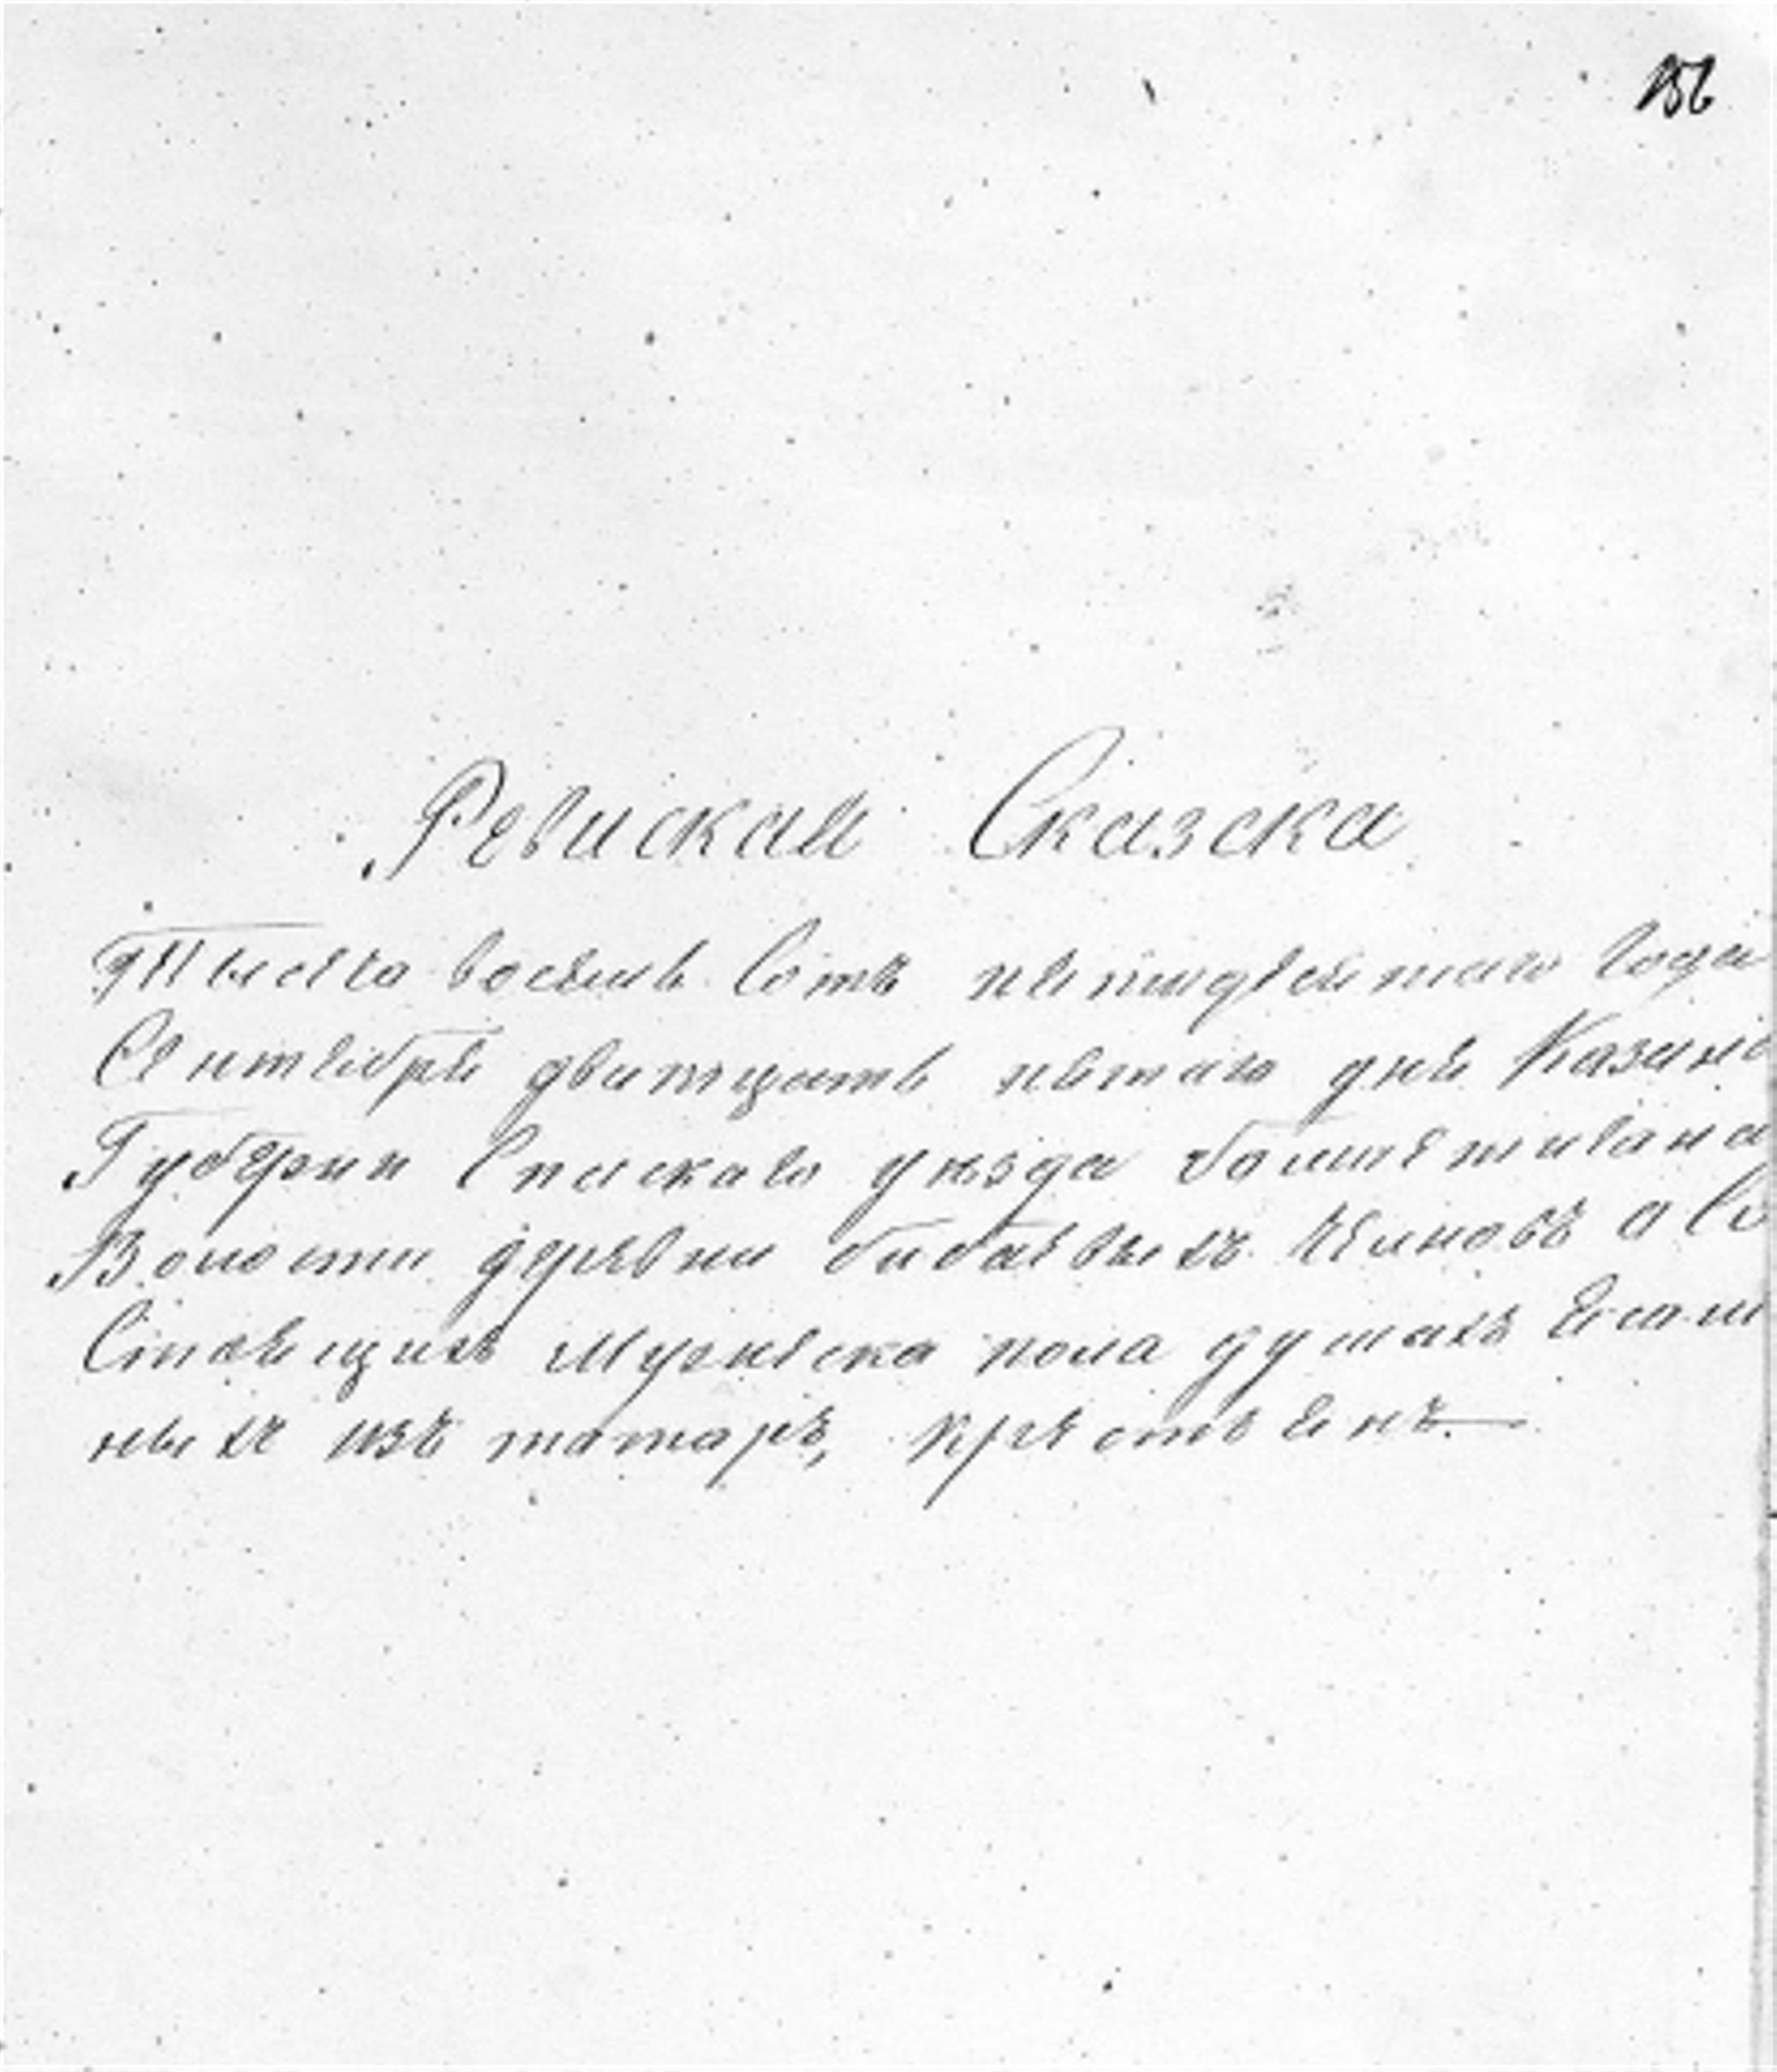 156
Ревиская Сказска
Тысеча восемь Сотъ пятидесятаго Года
Сентября двatцать пятаго дня Казанс
Губернии Спаскаго уезда
Волости деревни бибаевыхъ Челновъ о Со
Стоящихъ Мужеска пола душахъ Ясаш
ныхъ изъ татаръ, крестьянъ